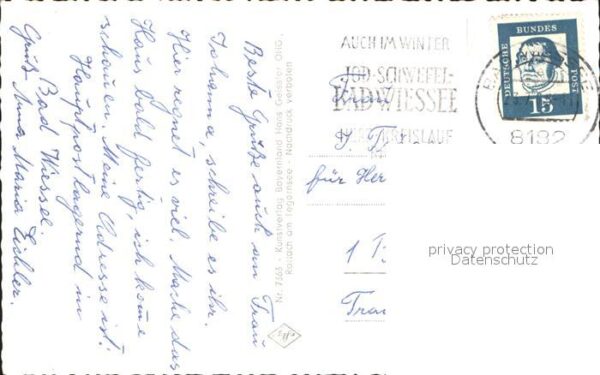 Beste Grüße auch an Frau
Johanna, schreibe es ihr.
Hier regnet es viel. Mache das
Haus bald fertig, ich kome
schauen. Meine Adresse ist:
Hauptpostlagernd in
Bad Wiessee.
Gruß Anna Maria Eichler.
Nr. 7469 - Kunstverlag Bauernland Hans Geissler OHG
Rottach am Tegernsee - Nachdruck verboten
AUCH IM WINTER
JOD-SCHWEFEL-
BAD WIESSEE
KREISLAUF
DEUTSCHE BUNDESPOST
15
8182
Frau
für Her
1
Trau
privacy protection
Datenschutz